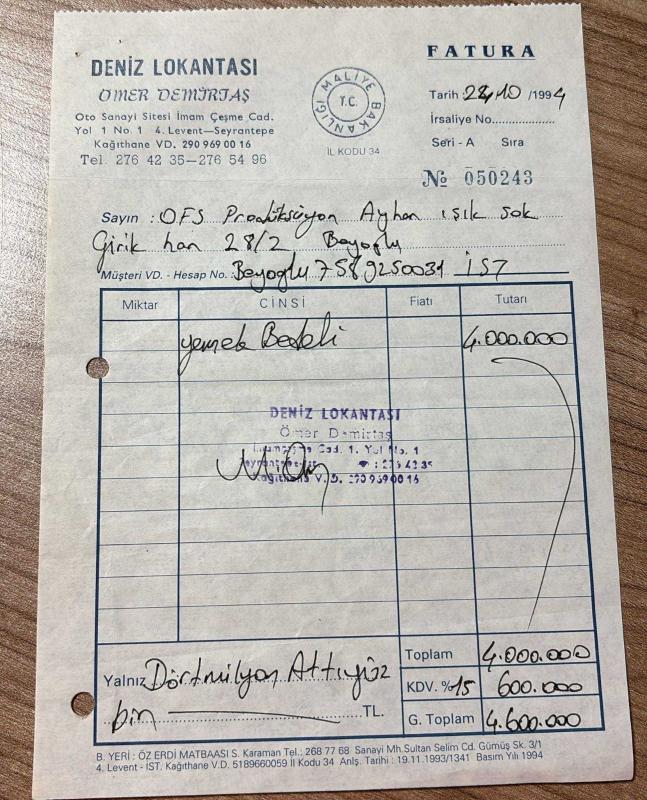 FATURA
DENİZ LOKANTASI
ÖMER DEMİRTAŞ
Oto Sanayi Sitesi İmam Çeşme Cad.
Yol 1 No 1 4. Levent—Seyrantepe
Kağıthane VD. 290 969 00 16
Tel. 276 42 35—276 54 96
T.C. MALİYE BAKANLIĞI
İL KODU 34
Tarih : 10 /1994
İrsaliye No
Seri - A Sıra
№ 050243
Sayın : OFS Prodüksiyon Ayhan ışık sok
Girik han 28/2 Beyoglu
Müşteri VD. - Hesap No. : Beyoglu 7589250031 İST
Miktar CİNSİ Fiatı Tutarı
yemek Bedeli 4.000.000
DENİZ LOKANTASI
Ömer Demirtaş
Cad. 1. Yol No. 1
Seyrantepe : 276 42 35
Kağıthane V.D. 290 969 00 16
Toplam 4.000.000
Yalnız Dörtmilyon Altıyüz
KDV. %15 600.000
bin TL.
G. Toplam 4.600.000
B. YERİ : ÖZ ERDİ MATBAASI S. Karaman Tel.: 268 77 68 Sanayi Mh. Sultan Selim Cd. Gümüş Sk. 3/1
4. Levent - İST. Kağıthane V.D. 5189660059 İl Kodu 34 Anlş. Tarihi : 19.11.1993/1341 Basım Yılı 1994